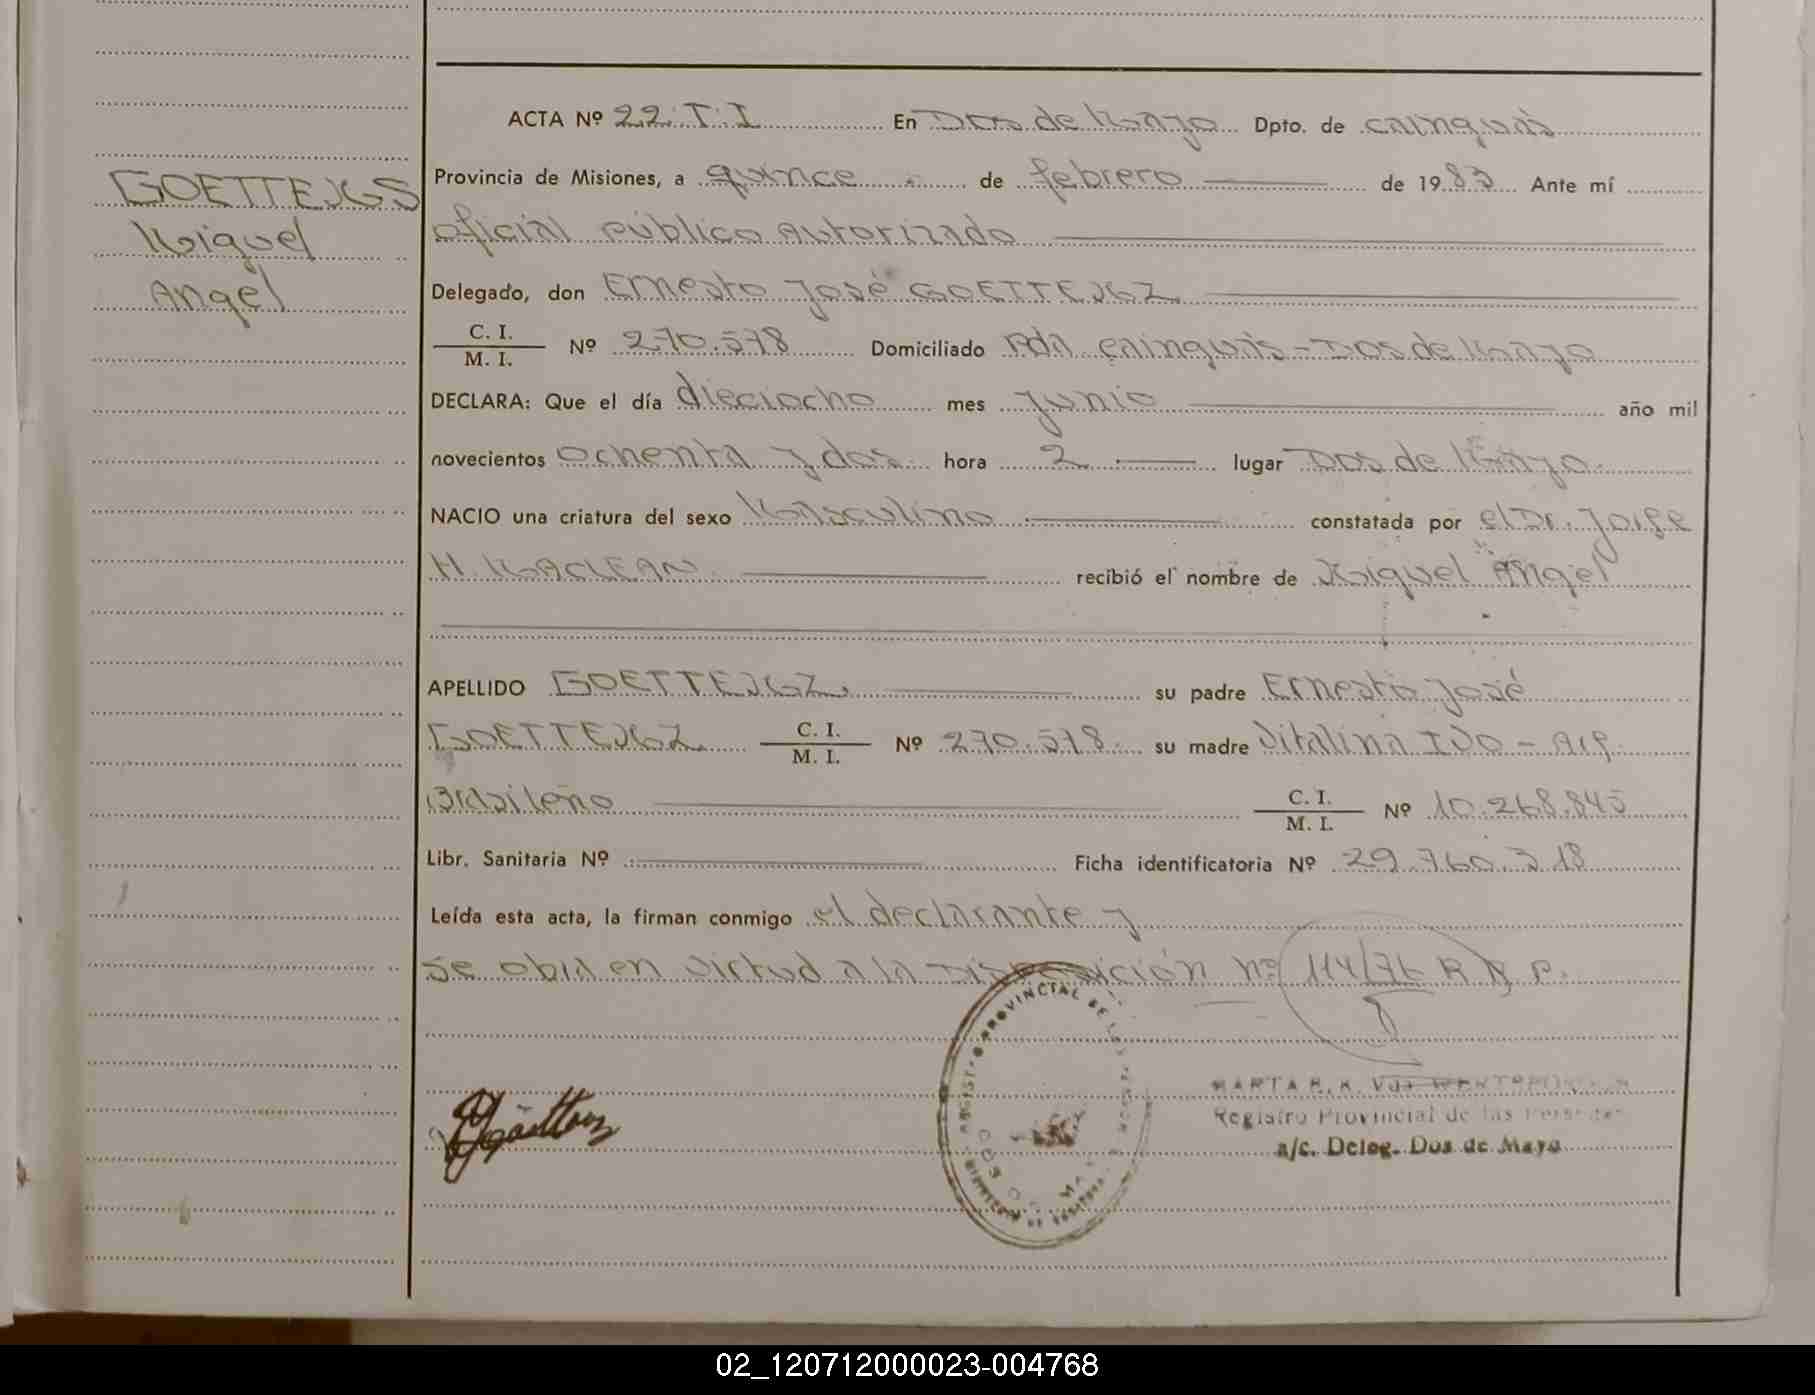 GOETTEMS
Miguel
Angel
ACTA Nº 22. T. I En Dos de Mayo Dpto. de Cainguás
Provincia de Misiones, a quince de febrero de 1983 Ante mí
oficial público autorizado
Delegado, don Ernesto José GOETTEMS
C. I.
M. I. Nº 270.578 Domiciliado Pda Cainguás - Dos de Mayo
DECLARA: Que el día dieciocho mes junio año mil
novecientos ochenta y dos hora 2 lugar Dos de Mayo
NACIO una criatura del sexo Masculino constatada por el Dr. Jorge
H. MACLEAN recibió el nombre de Miguel Angel
APELLIDO GOETTEMS su padre Ernesto José
GOETTEMS C. I.
M. I. Nº 270.578 su madre Vitalina IVO - Arg.
Brasileño C. I.
M. I. Nº 10.268.845
Libr. Sanitaria Nº Ficha identificatoria Nº 29.760.318
Leída esta acta, la firman conmigo el declarante y
se obra en virtud a la Disposición nº 114/76 R. N. P.
MARTA
Registro Provincial de las Personas
a/c. Deleg. Dos de Mayo
PROVINCIAL DE LAS
02_120712000023-004768